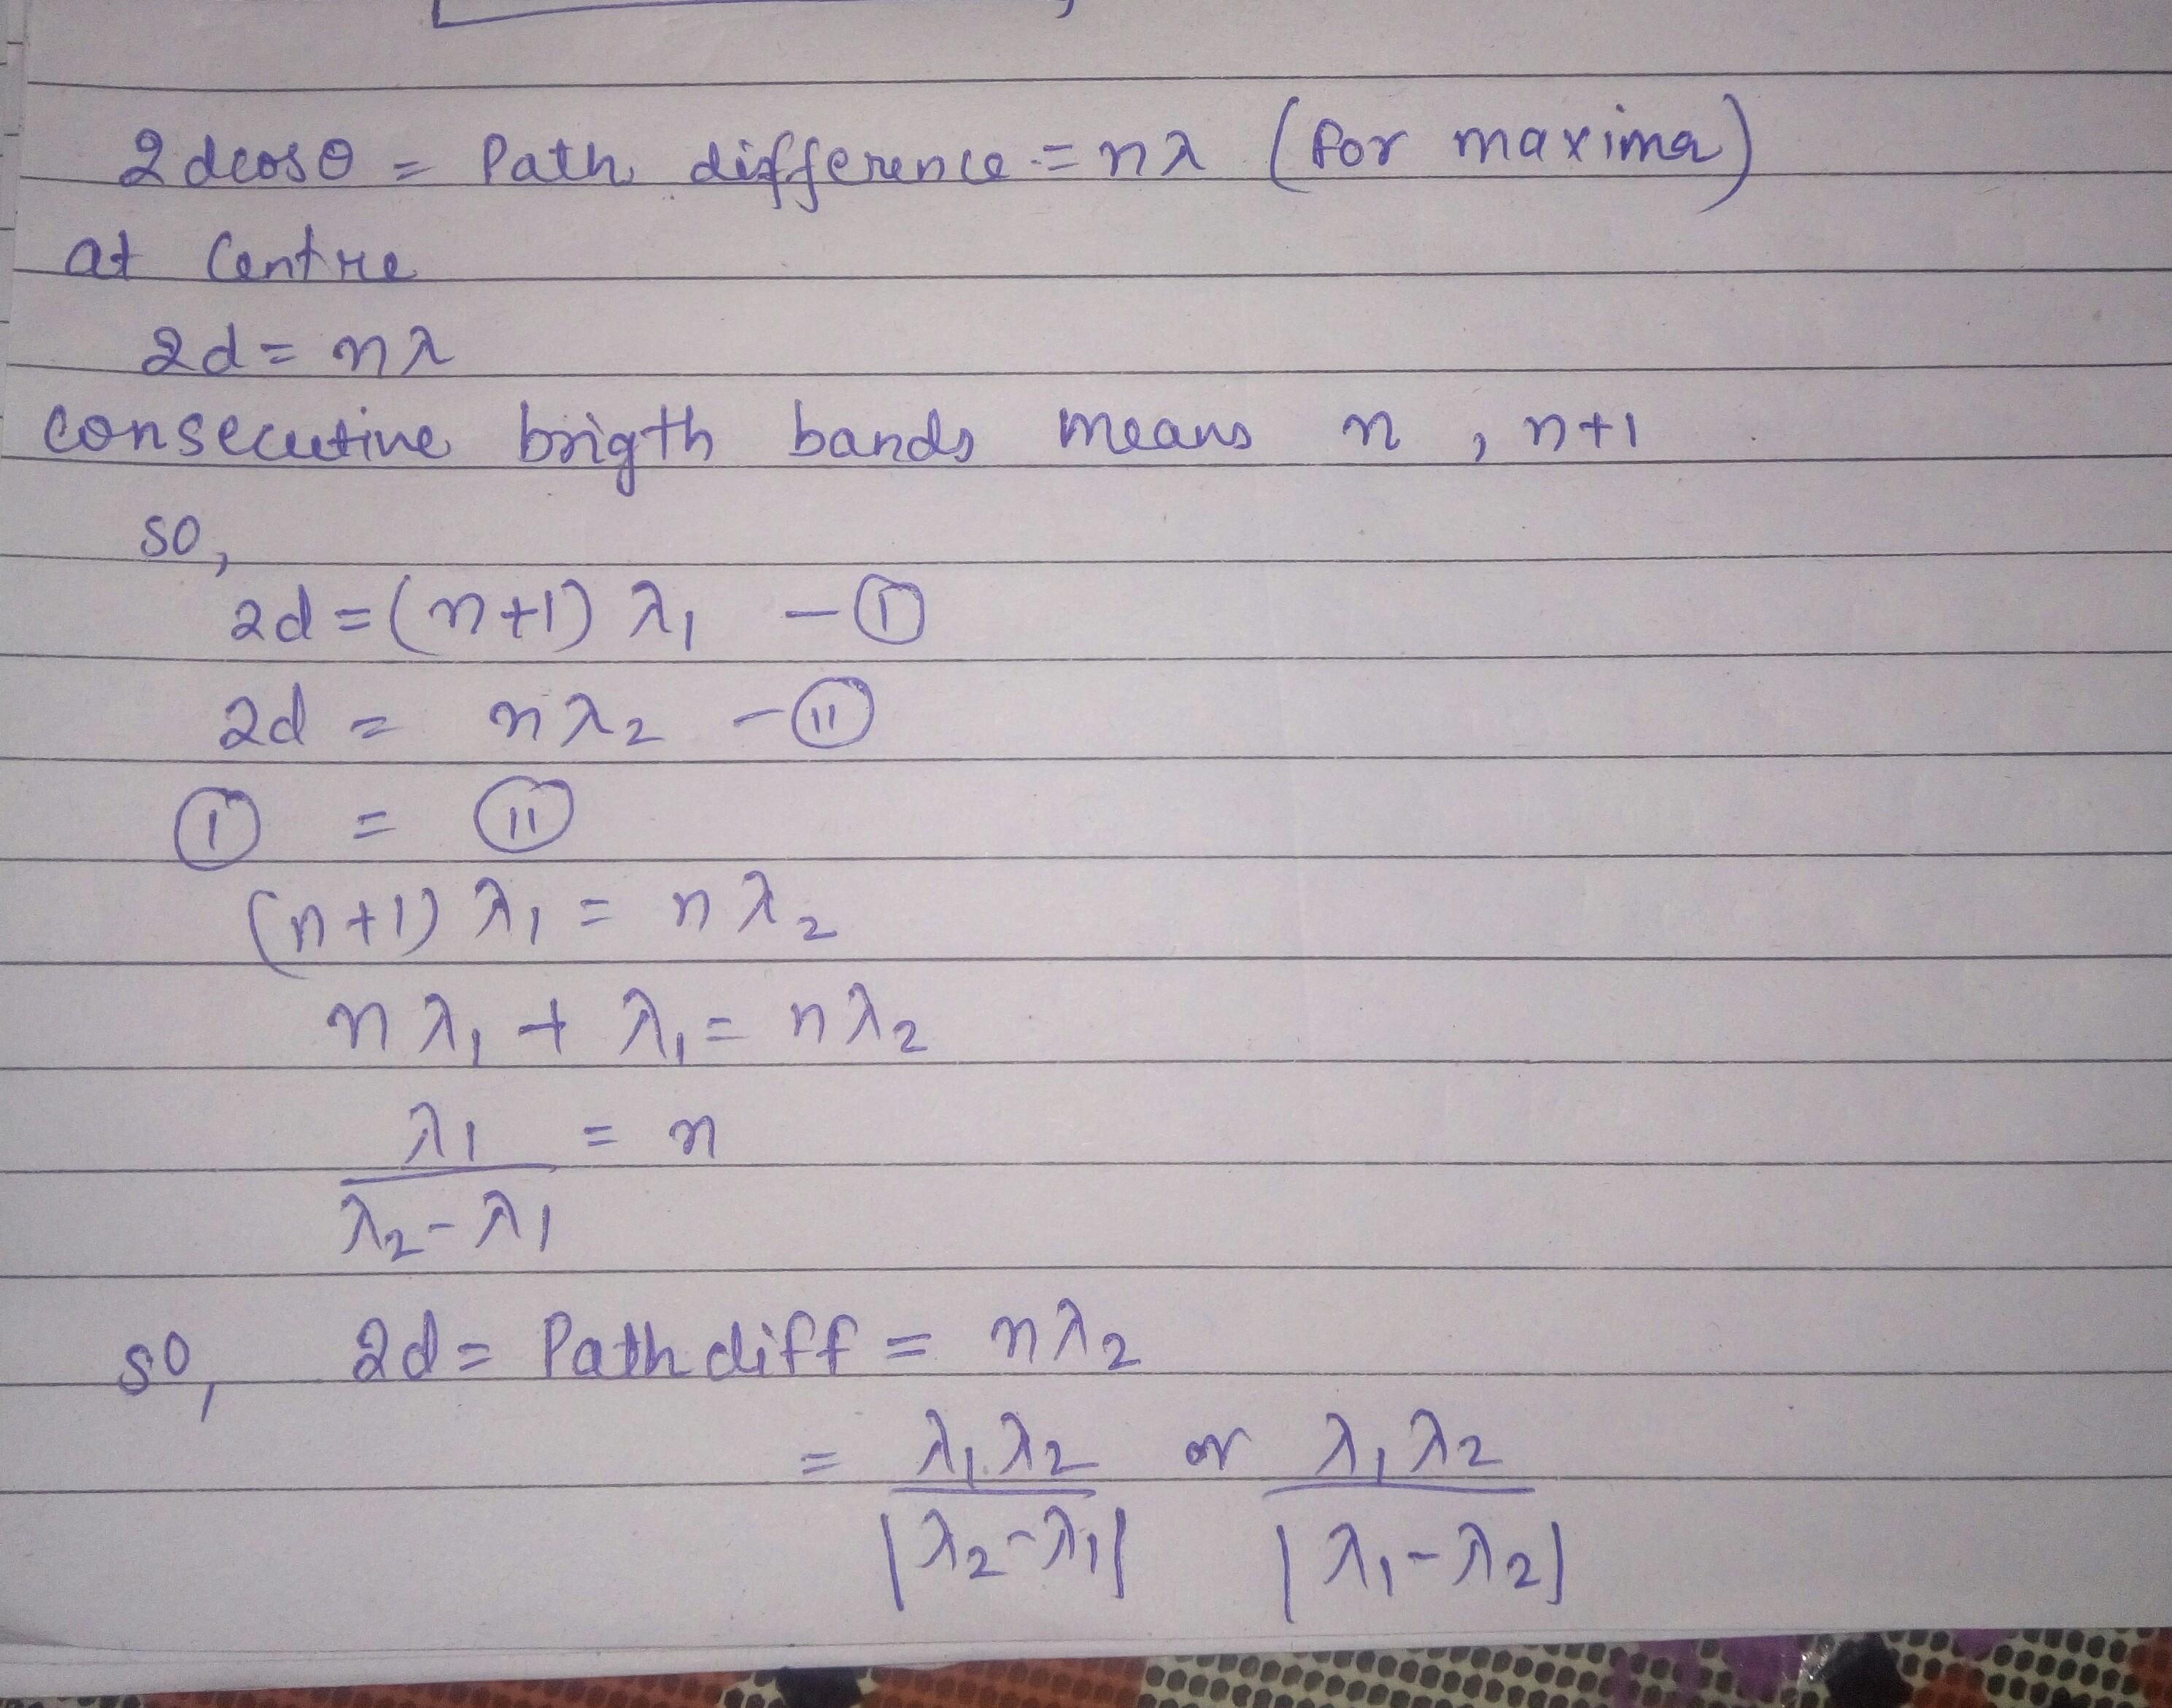 2dcosθ = Path difference = nλ (for maxima)
at Centre
2d = nλ
consecutive brigth bands means n , n+1
so,
2d = (n+1) λ₁ - Ⓘ
2d = nλ₂ - (II)
Ⓘ = (II)
(n+1) λ₁ = nλ₂
nλ₁ + λ₁ = nλ₂
λ₁ / (λ₂-λ₁) = n
so, 2d = Path diff = nλ₂
= λ₁λ₂ / |λ₂-λ₁| or λ₁λ₂ / |λ₁-λ₂|